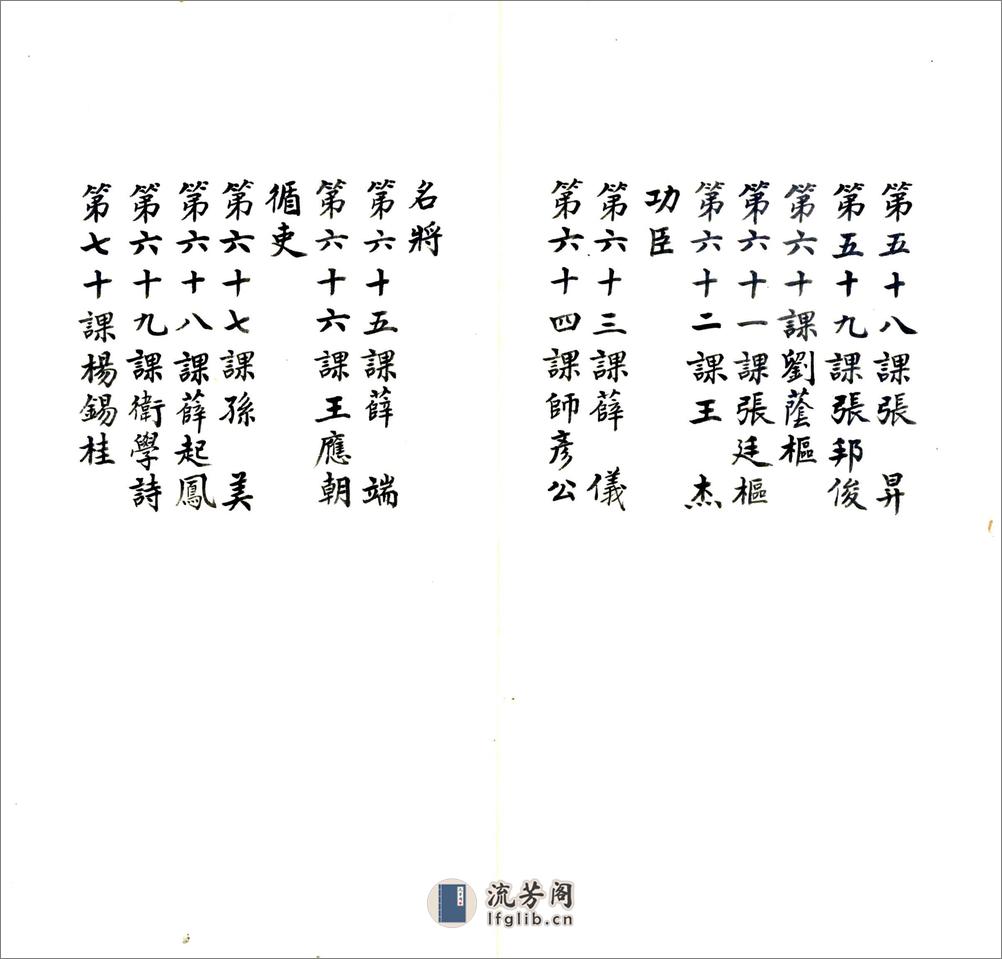 第五十八課張　昇
第五十九課張邦俊
第六十課劉蔭樞
第六十一課張廷樞
第六十二課王　杰
功臣
第六十三課薛　儀
第六十四課師彥公
名將
第六十五課薛　端
第六十六課王應朝
循吏
第六十七課孫　美
第六十八課薛起鳳
第六十九課衛學詩
第七十課楊錫桂
流芳阁
lfglib.cn